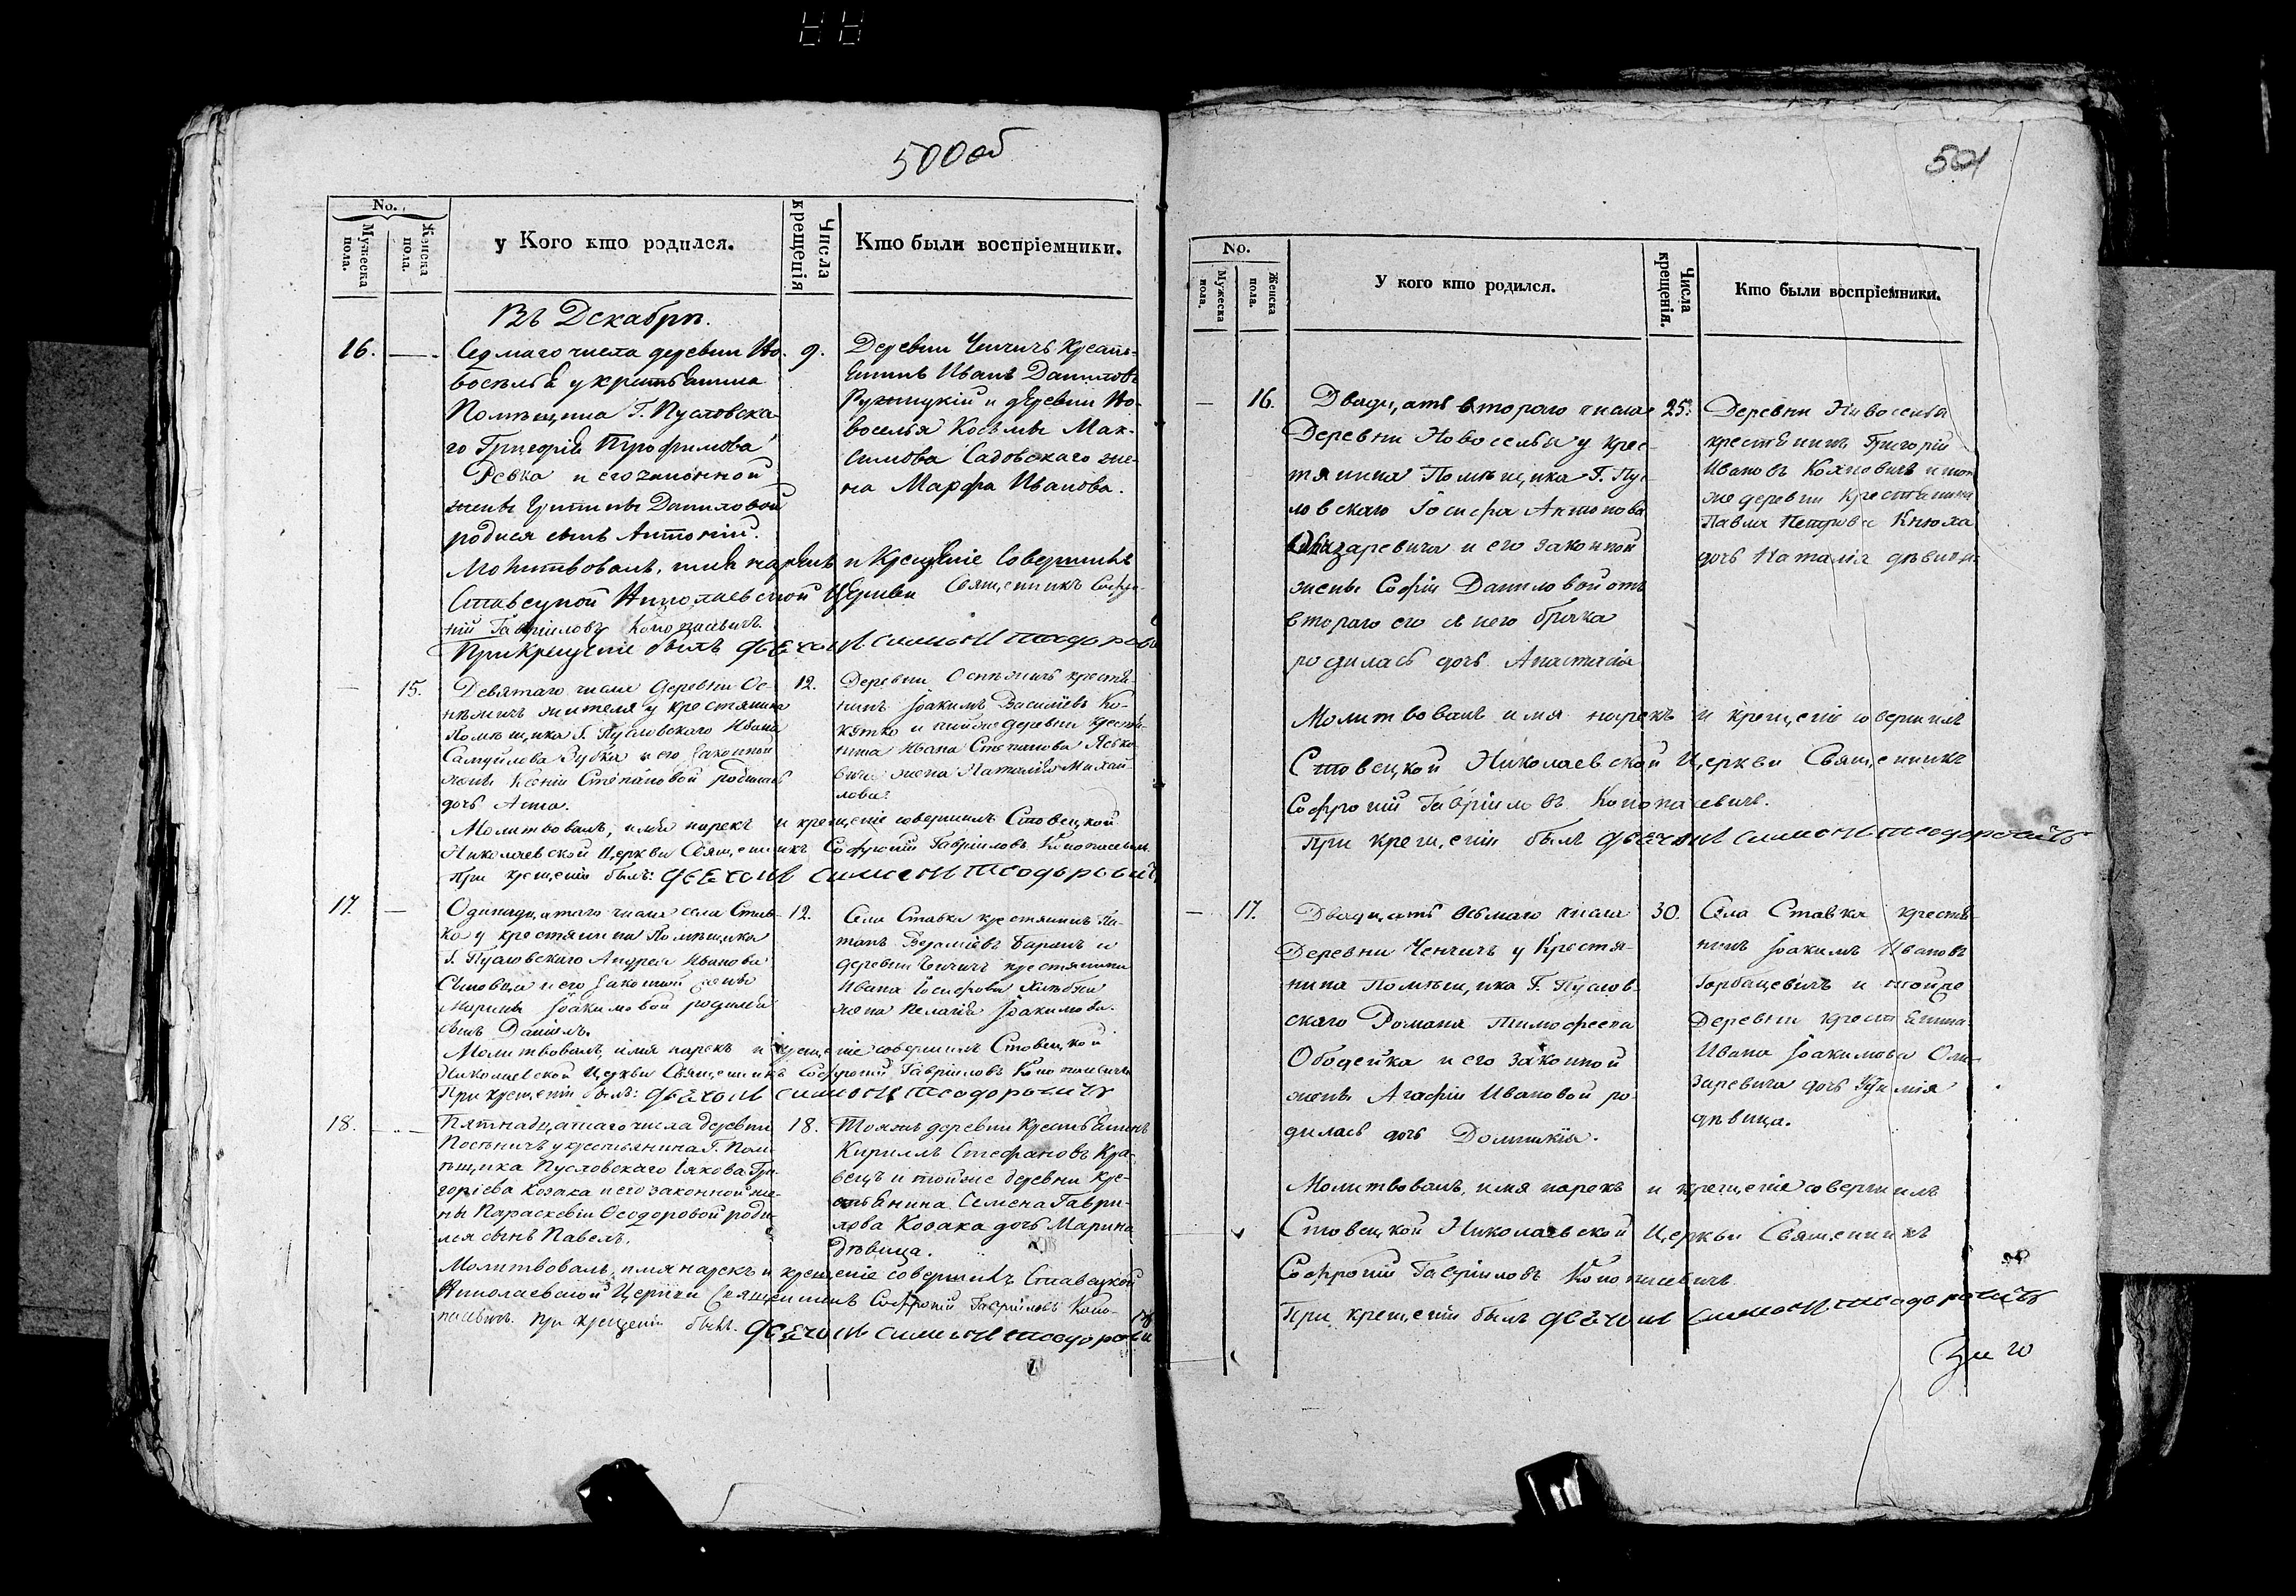 500 об
No.
Мужеска пола.
Женска пола.
у Кого кто родился.
Числа крещенія
Кто были воспріемники.
Въ Декабрѣ.
16.
Седмаго числа деревни Но-
восѣлья у крестьянина
Помѣщика Г. Пусловска-
го Григорія Трофимова
Ревка и его законной
жены Данииловой
родися сынъ Антоній.
9.
Деревни Ченчичъ Кресть-
янинъ Иванъ Даниловъ
и деревни Но-
воселья Косьмы Мак-
симова Садовскаго же-
на Марфа Иванова.
Молитвовалъ, имя нарекъ и Крещеніе Совершилъ
Ставецкой Николаевской Церкви Священникъ Софро-
ній Гавріиловъ Конопасевичъ
При Крещеніи былъ
15.
Девятаго числа Деревни Ос-
нѣжичъ жителя у крестянина
Помѣщика Г. Пусловскаго Ивана
Самуйлова Зубка и его законной
жены Ксеніи Степановой родилась
дочь Анна.
12.
Деревни Оснѣжичъ крестья-
нинъ Іоакимъ Василіевъ Ко-
жтко и тойже деревни крестья-
нина Ивана Степанова Яско-
вича жена Наталія Михай-
лова.
Молитвовалъ, имя нарекъ и крещеніе совершилъ Ставецкой
Николаевской Церкви Священникъ Софроній Гавріиловъ Конопасевичъ
При крещеніи былъ:
17.
Одинадцатаго числа села Став-
ка у крестянина Помѣщика
Г. Пусловскаго Андрея Иванова
и его законной жены
Марины Іоакимовой родился
сынъ Даніилъ.
12.
Села Ставка крестянинъ По-
тапъ Баранъ и
деревни Ченчичъ крестянина
Ивана Іосифова
жена Пелагія Іоакимова.
Молитвовалъ, имя нарекъ и крещеніе совершилъ Ставецкой
Николаевской Церкви Священникъ Софроній Гавріиловъ Конопасевичъ
При крещеніи былъ:
18.
Пятнадцатаго числа деревни
Посѣничъ у крестьянина Г. Пом-
ѣщика Пусловскаго Іякова Гри-
горіева Козака и его законной же-
ны Параскевіи Ѳеодоровой роди-
лся сынъ Павелъ.
18.
Тояжъ деревни Крестьянинъ
Кириллъ Стефановъ Кра-
вецъ и тойже деревни кре-
стьянина Семена Гаври-
лова Козака дочь Марина
дѣвица.
Молитвовалъ, имя нарекъ и крещеніе совершилъ Ставецкой
Николаевской Церкви Священникъ Софроній Гавріиловъ Коно-
пасевичъ. При крещеніи былъ.
501
No.
Мужеска пола.
Женска пола.
У кого кто родился.
Числа крещенія.
Кто были воспріемники.
16.
Двадцать втораго числа
Деревни Новоселья у крес-
тянина Помѣщика Г. Пус-
ловскаго Іосифа Антонова
и его законной
жены Софіи Даниловой отъ
втораго его с нею брака
родилась дочь Анастасія
25.
Деревни Новоселья
крестьянинъ Григорій
Ивановъ и той
же деревни крестьянина
Павла Петрова Кнюха
дочь Наталія дѣвица.
Молитвовалъ имя нарекъ и крещеніе совершилъ
Ставецкой Николаевской Церкви Священникъ
Софроній Гавріиловъ Конопасевичъ.
При крещеніи былъ
17.
Двадцать осьмаго числа
Деревни Ченчичъ у Крестя-
нина Помѣщика Г. Пуслов-
скаго Романа Тимофеева
Ободейка и его законной
жены Агафіи Ивановой ро-
дилась дочь Домникія.
30.
Села Ставка крестья-
нинъ Іоакимъ Ивановъ
Горбацевичъ и тойже
деревни крестьянина
Ивана Іоакимова Оли-
заревича дочь
дѣвица.
Молитвовалъ, имя нарекъ и крещеніе совершилъ
Ставецкой Николаевской Церкви Священникъ
Софроній Гавріиловъ Конопасевичъ
При крещеніи былъ